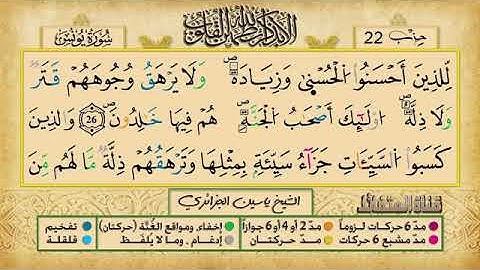 سُورَةُ يُونُس
ألا بذكر الله تطمئن القلوب
حزب 22
لِّلذِينَ أَحْسَنُوا۟ الْحُسْن۪يٰ وَزِيَادَةٞ وَلَا يَرْهَقُ وُجُوهَهُمْ قَتَرٞ
وَلَا ذِلَّةٌ اوْلَٰٓئِكَ أَصْحَٰبُ الْجَنَّةِ هُمْ فِيهَا خَٰلِدُونَ 26 وَالذِينَ
كَسَبُوا۟ السَّيِّـَٔاتِ جَزَآءُ سَيِّئَةِۢ بِمِثْلِهَا وَتَرْهَقُهُمْ ذِلَّةٞ مَّا لَهُم مِّنَ
الشيخ ياسين الجزائري
مدّ 6 حركات لزوماً مدّ 2 أو 4 أو 6 جوازاً إخفاء، ومواقع الغُنَّة (حركتان) تفخيم
مدّ مشبع 6 حركات مدّ حركتان إدغام، وما لا يُلفَظ قلقلة